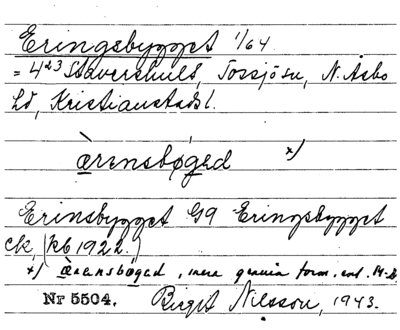 Eringsbygget 1/64
= 4²³ Stavershult, Tossjö sn, N. Åsbo
hd, Kristianstads l.
æ̀rinsbøged x)
Erinsbygget G9 Eringsbygget
ek, (kb 1922.)
x) æ̀ransbøgad, mera genuin form, enl.
Nr 5504. Birgit Nilsson, 1943.